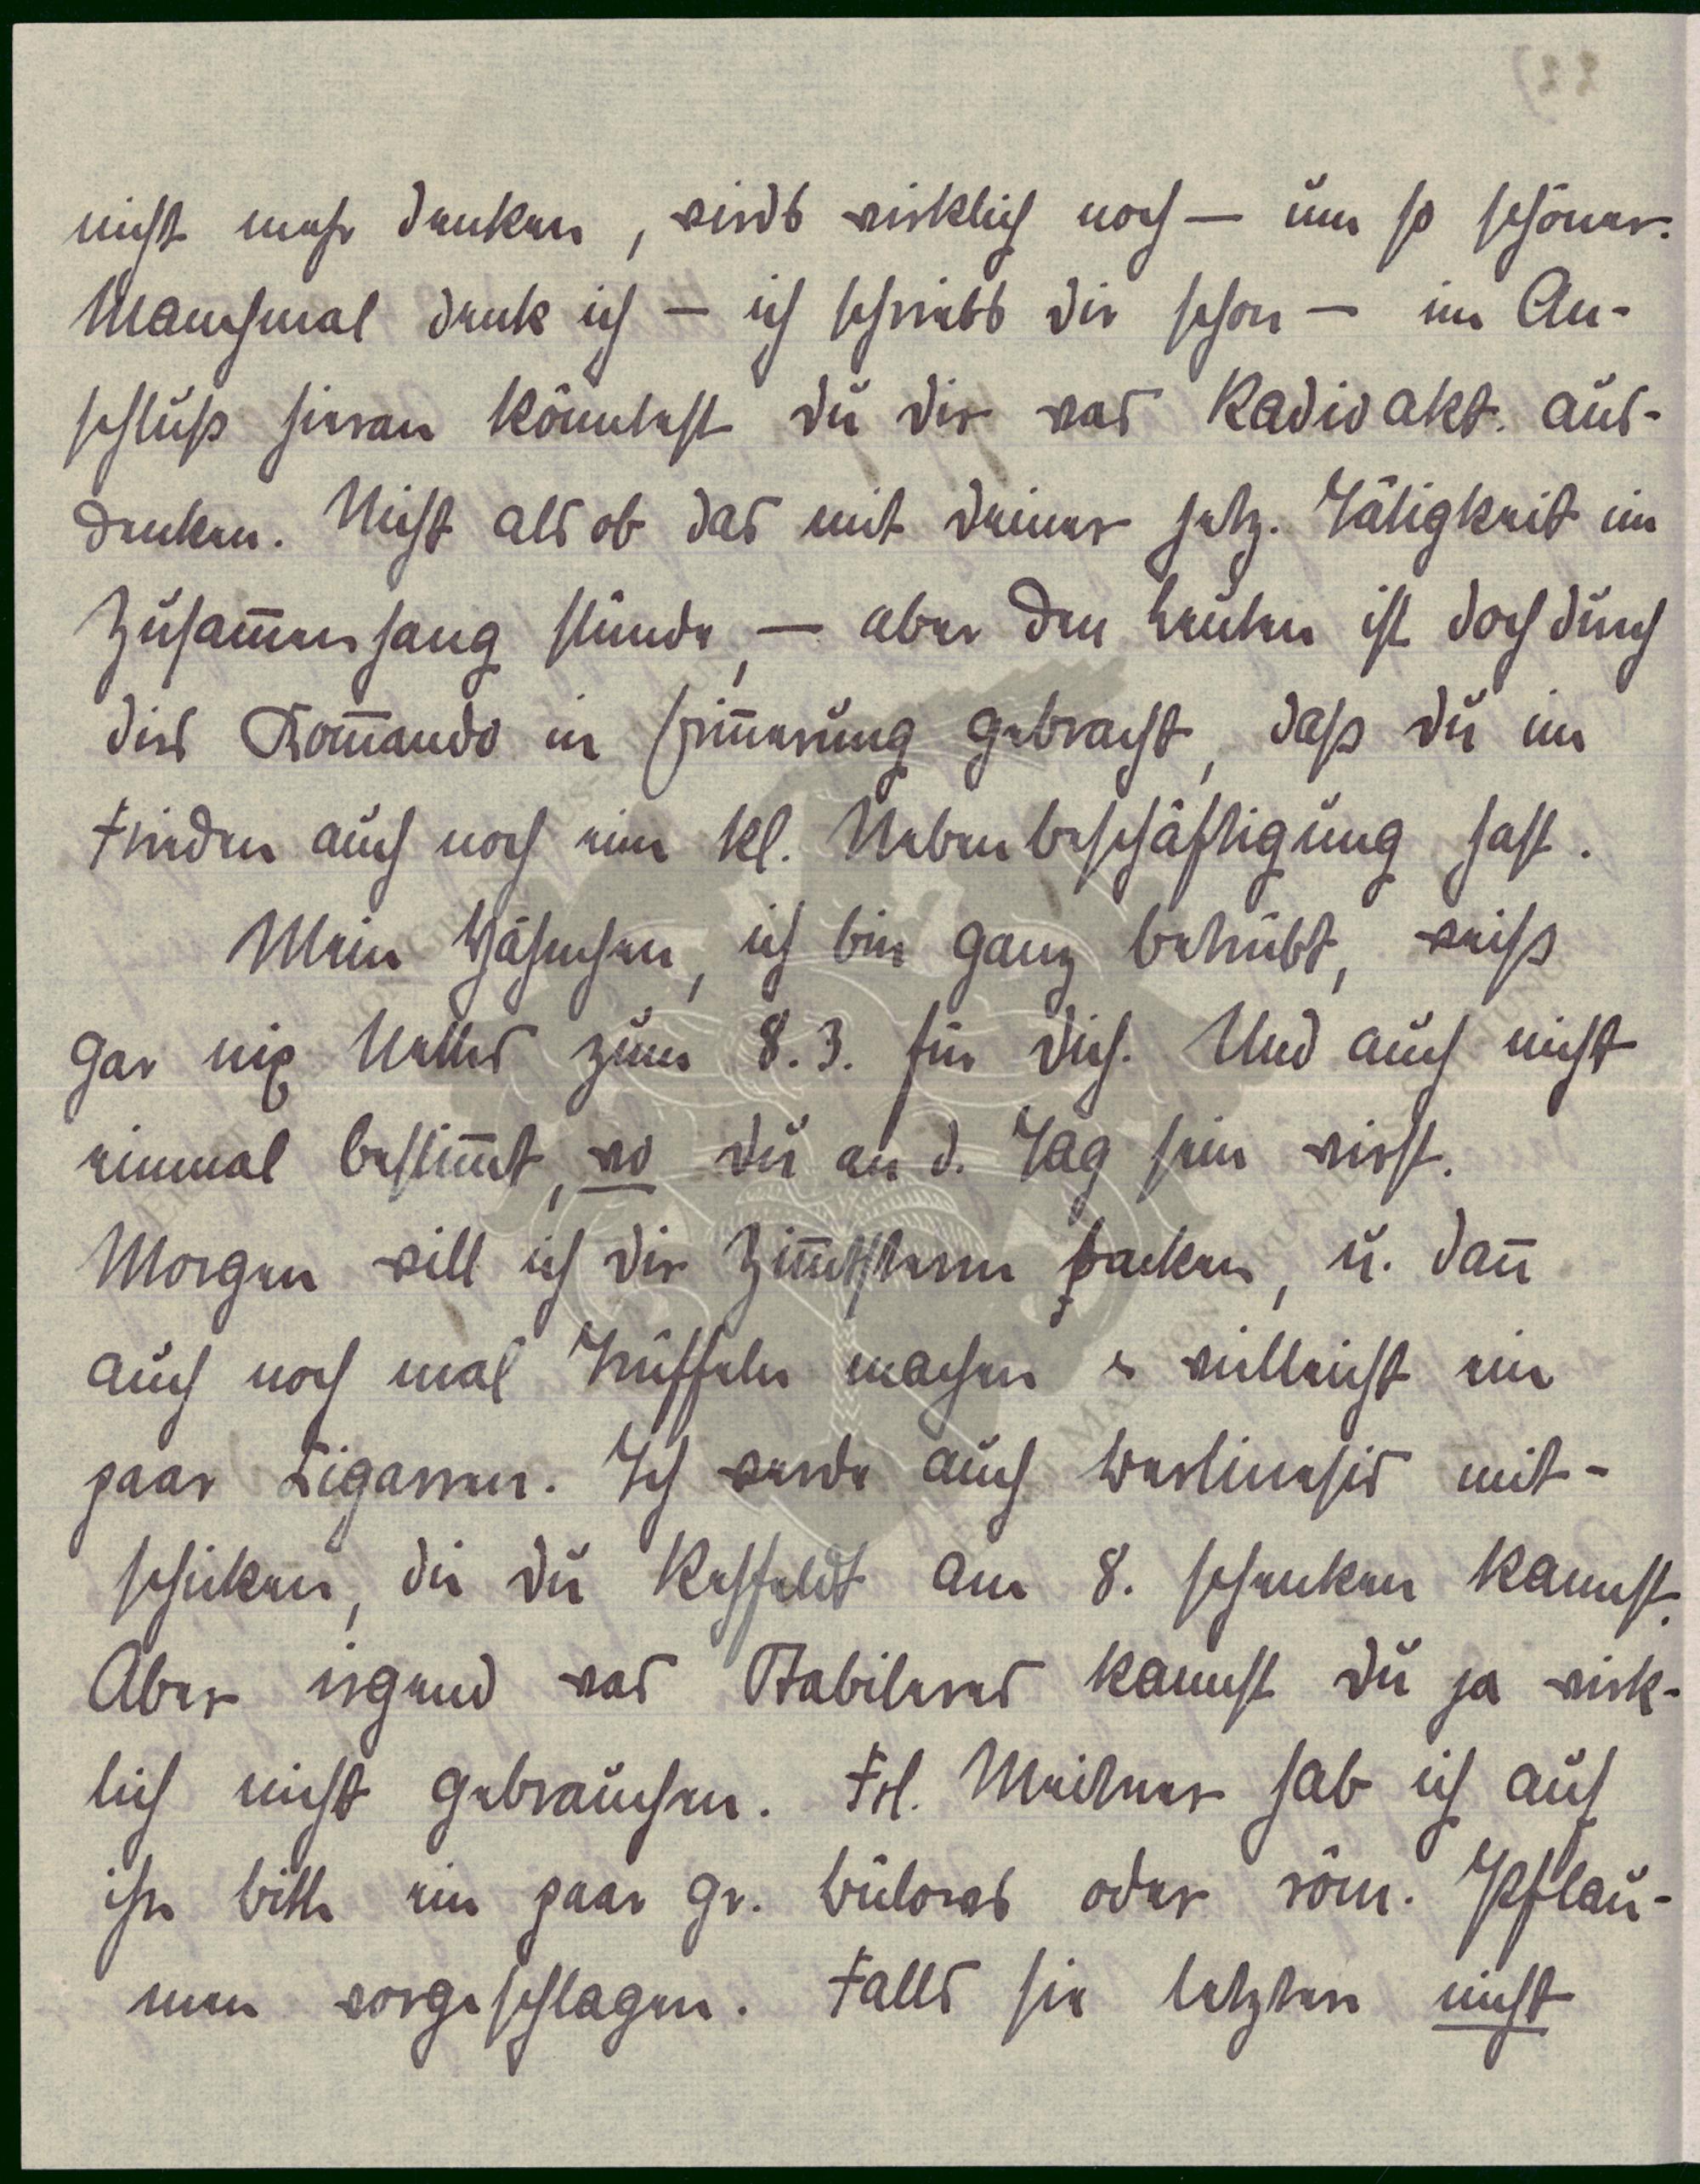 nicht mehr denken, wirds wirklich noch — um so schöner.
Manchmal denk ich — ich schriebs dir schon — im An-
schluß hieran könntest du dir was Radioakt. aus-
denken. Nicht als ob das mit deiner jetz. Tätigkeit im
Zusam̅enhang stünde, — aber den Leuten ist doch durch
dies Kom̅ando in Erin̅erung gebracht, daß du im
Frieden auch noch eine kl. Nebenbeschäftigung hast.
Mein Hähnchen, ich bin ganz betrübt, weiß
gar nix Nettes zum 8.3. für dich. Und auch nicht
einmal bestim̅t, wo du an d. Tag sein wirst.
Morgen will ich dir Zim̅tsterne backen, u. dan̅
auch noch mal Trüffeln machen & vielleicht ein
paar Zigarren. Ich werde auch mit-
schicken, die du am 8. schenken kannst.
Aber irgend was Stabileres kannst du ja wirk-
lich nicht gebrauchen. Frl. Meitner hab ich auf
ihre Bitte ein paar gr. oder röm. Pflau-
men vorgeschlagen. Falls sie letztere nicht